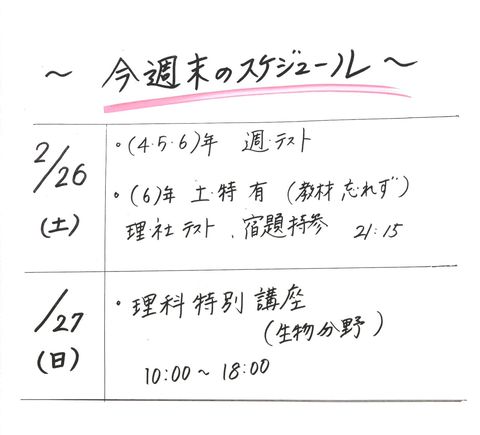 ～ 今週末のスケジュール ～
2/26
(土)
・(4・5・6)年 週・テスト
・(6)年 土・特 有 (教材忘れず)
理・社 テスト、宿題持参 21:15
/27
(日)
・理科特別講座
(生物分野)
10:00～18:00